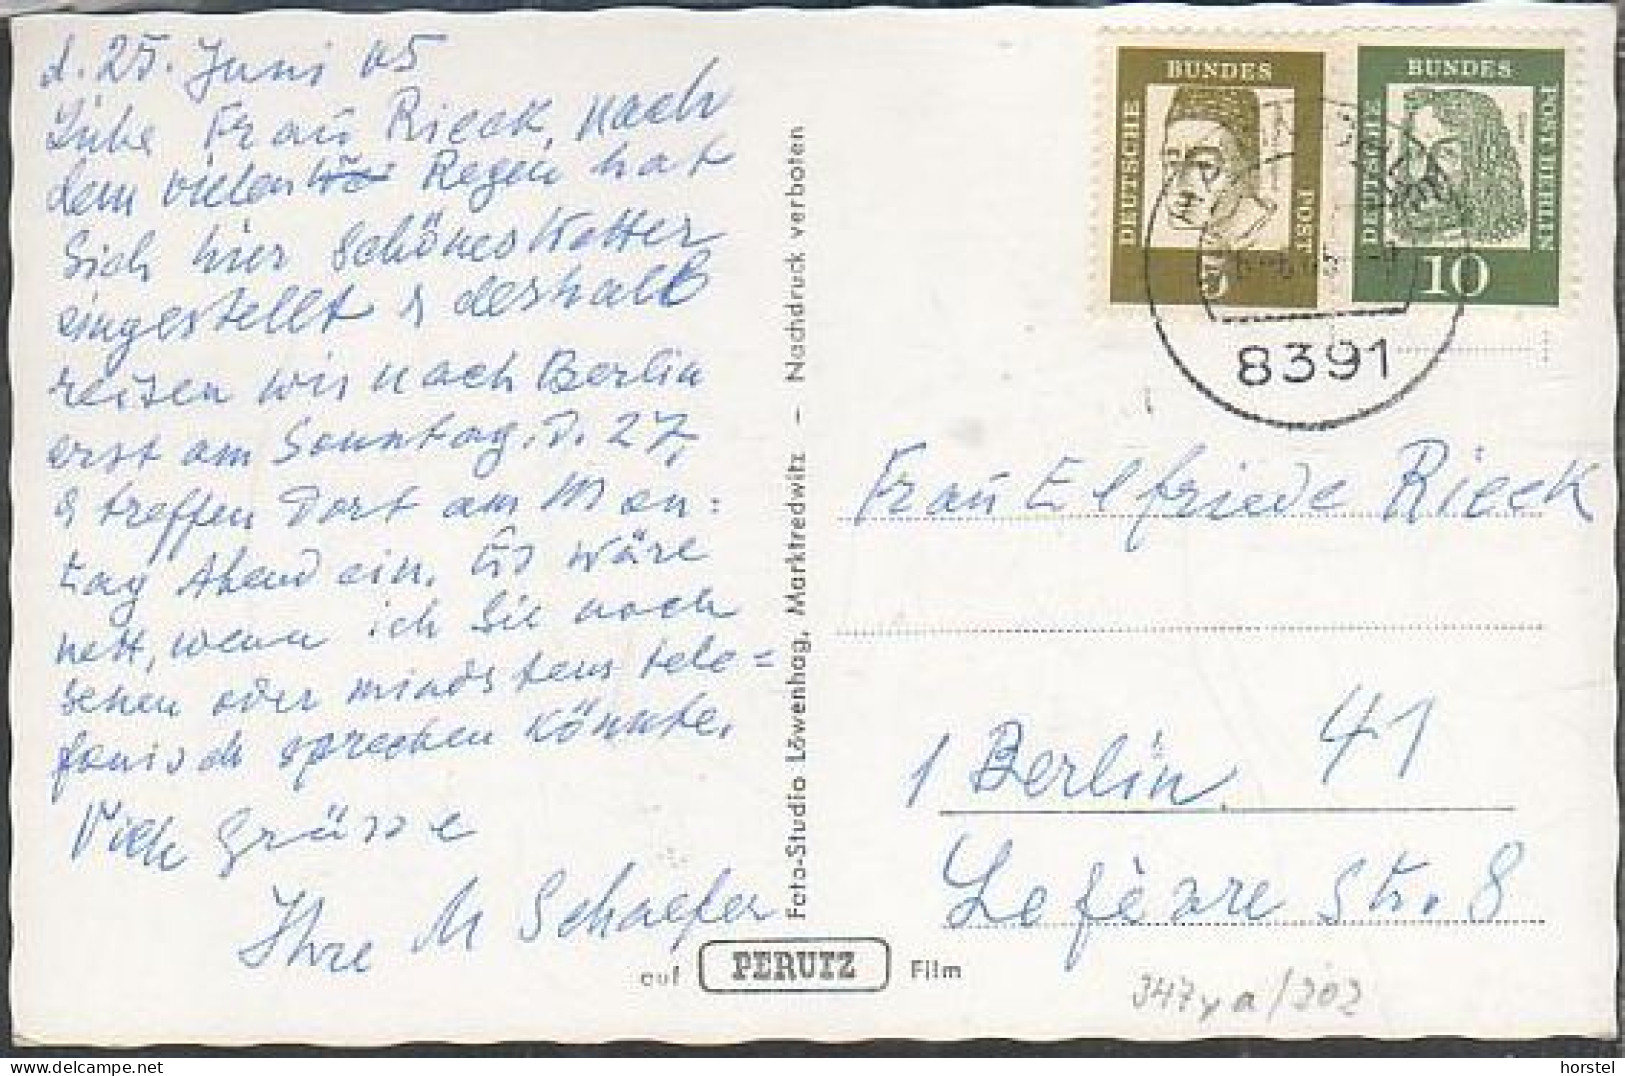 d. 25. Juni 65
Liebe Frau Rieck, nach
dem vielen Regen hat
sich hier schönes Wetter
eingestellt & deshalb
reisen wir nach Berlin
erst am Sonntag. d. 27,
& treffen dort am Mon=
tag Abend ein. Es wäre
nett, wenn ich Sie noch
sehen oder mindstens tele=
fonisch sprechen könnte.
Viele Grüsse
Ihre M Schaefer
Foto-Studio Löwenhag, Marktredwitz - Nachdruck verboten
auf PERUTZ Film
DEUTSCHE BUNDES POST
5
DEUTSCHE BUNDES POST BERLIN
10
8391
Frau Elfriede Rieck
1 Berlin 41
Lefèvre Str. 8
347ya/202
horstel
delcampe.net